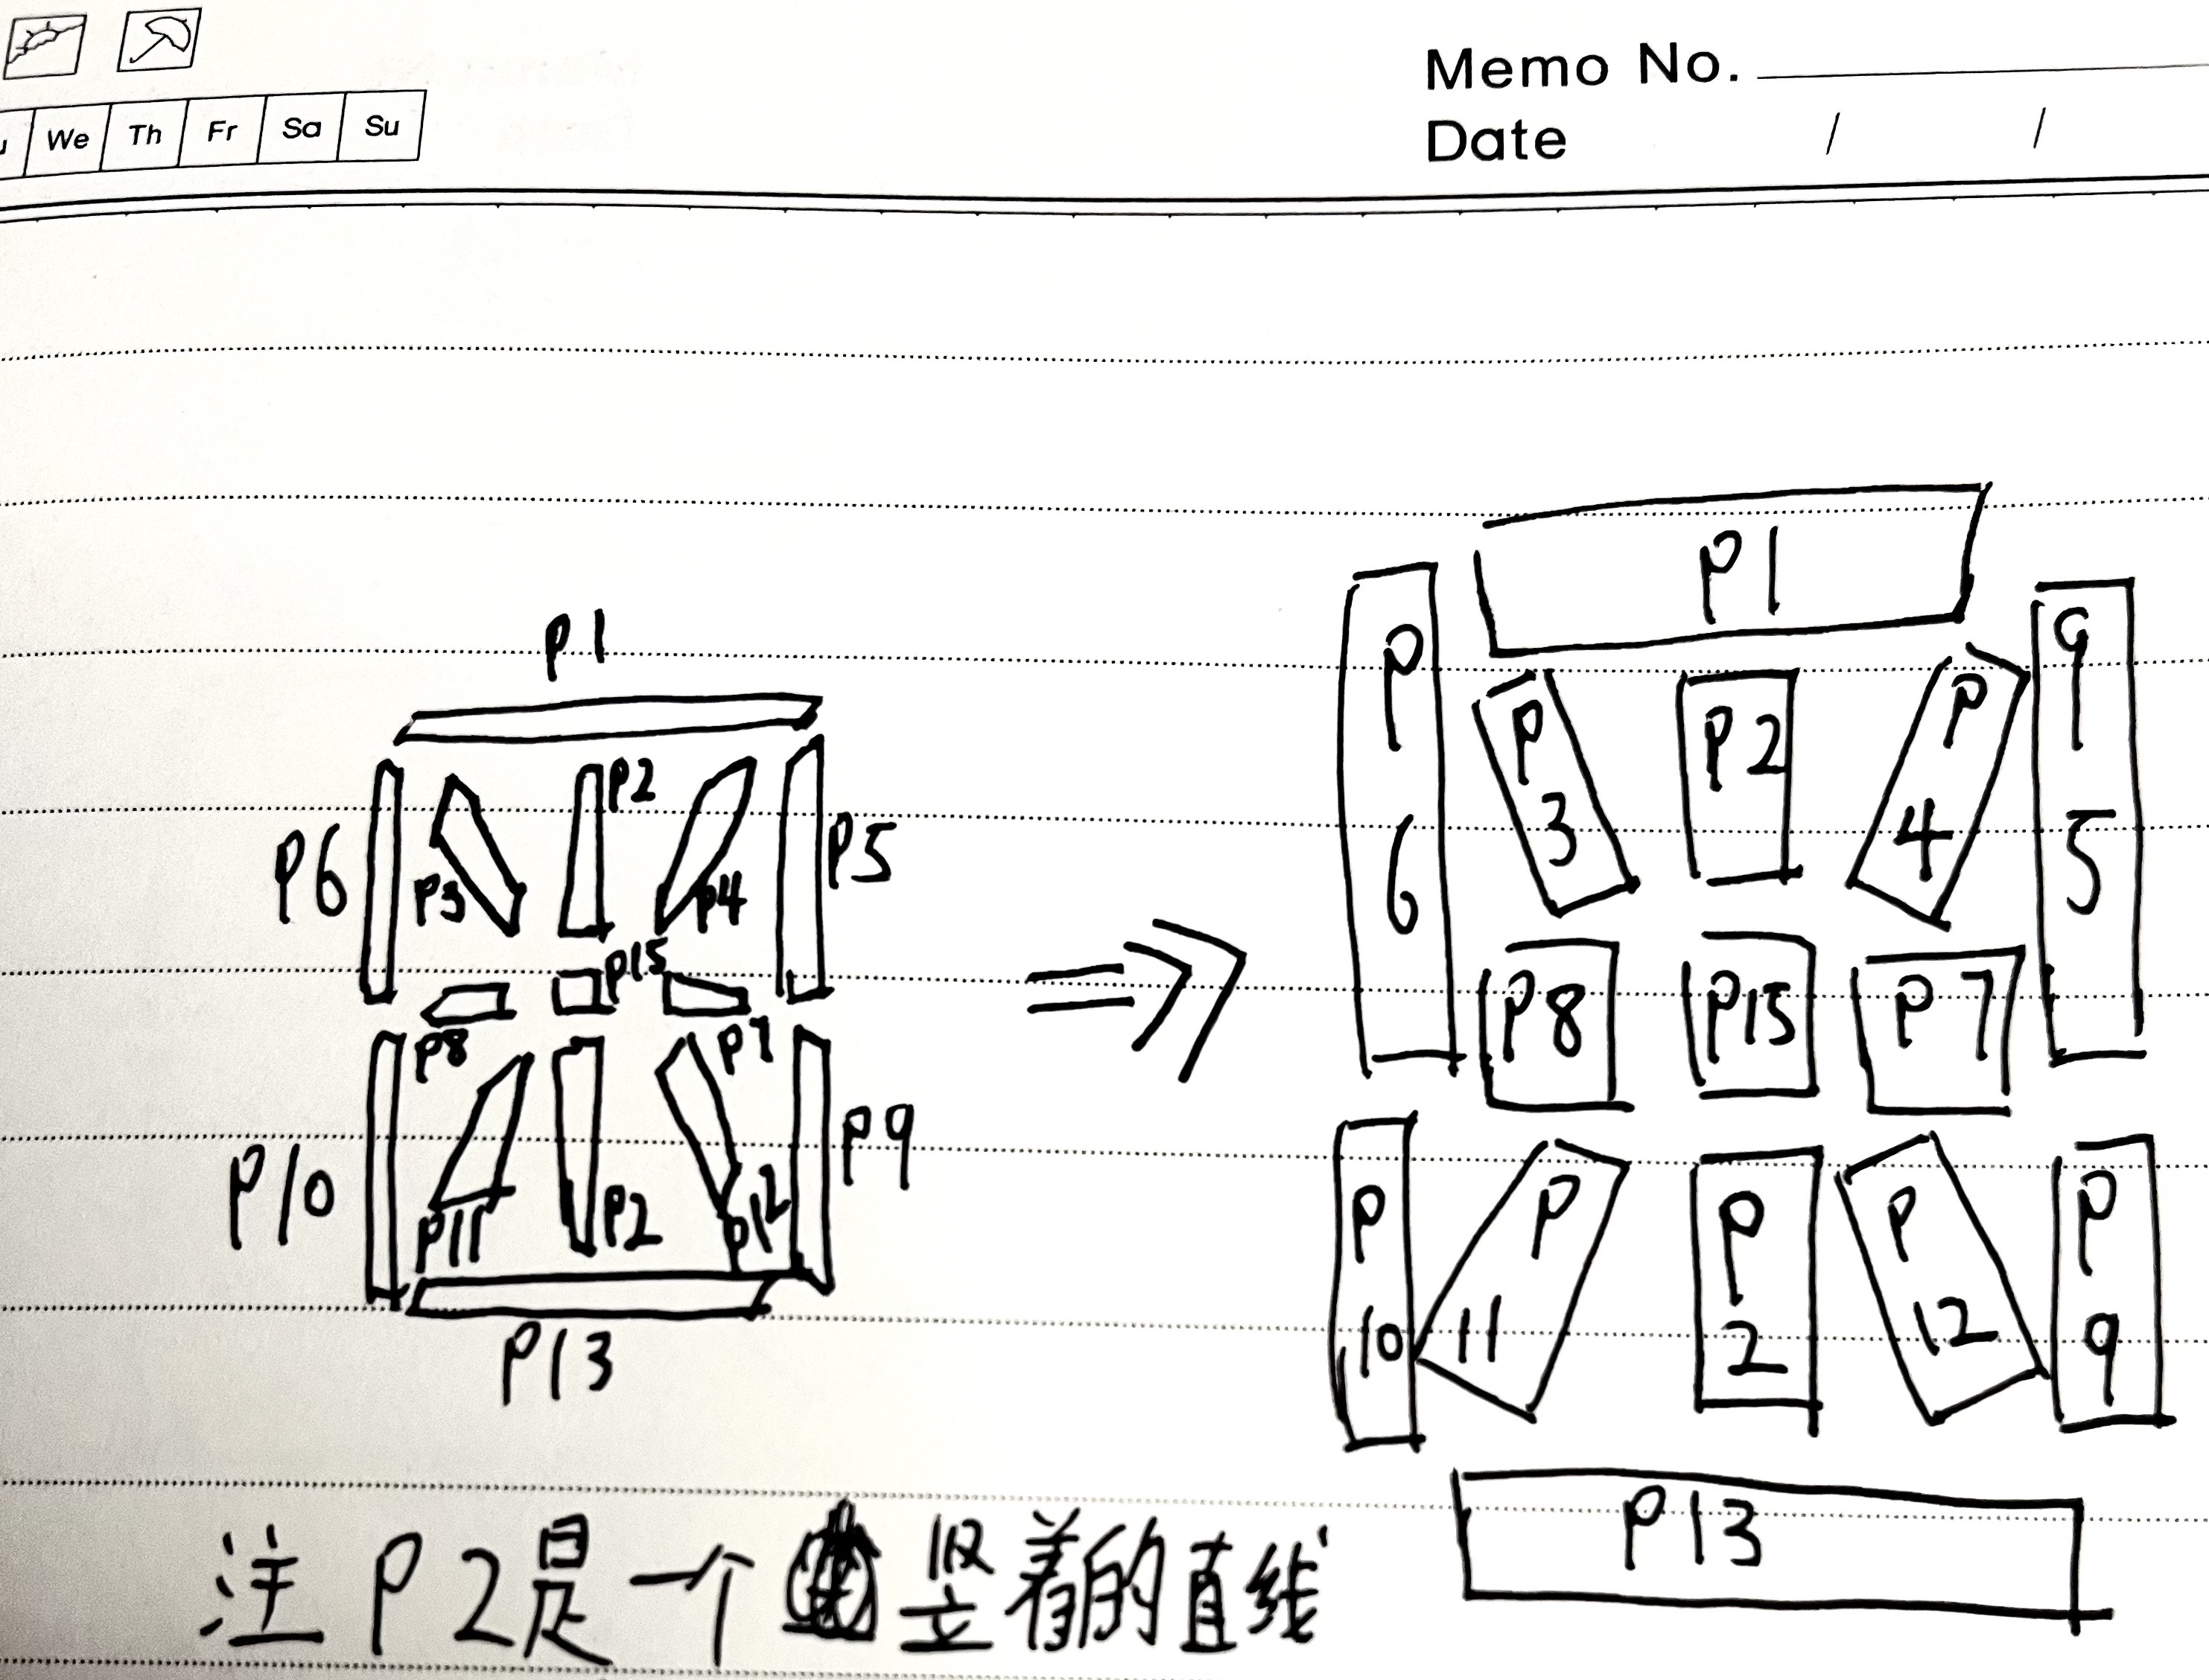 We Th Fr Sa Su
Memo No.
Date / /
P1
P6 P3 P2 P4 P5
P15
P8 P7
P10 P11 P2 P12 P9
P13
P1
P6 P3 P2 P4 P5
P8 P15 P7
P10 P11 P2 P12 P9
P13
注 P2是一个竖着的直线